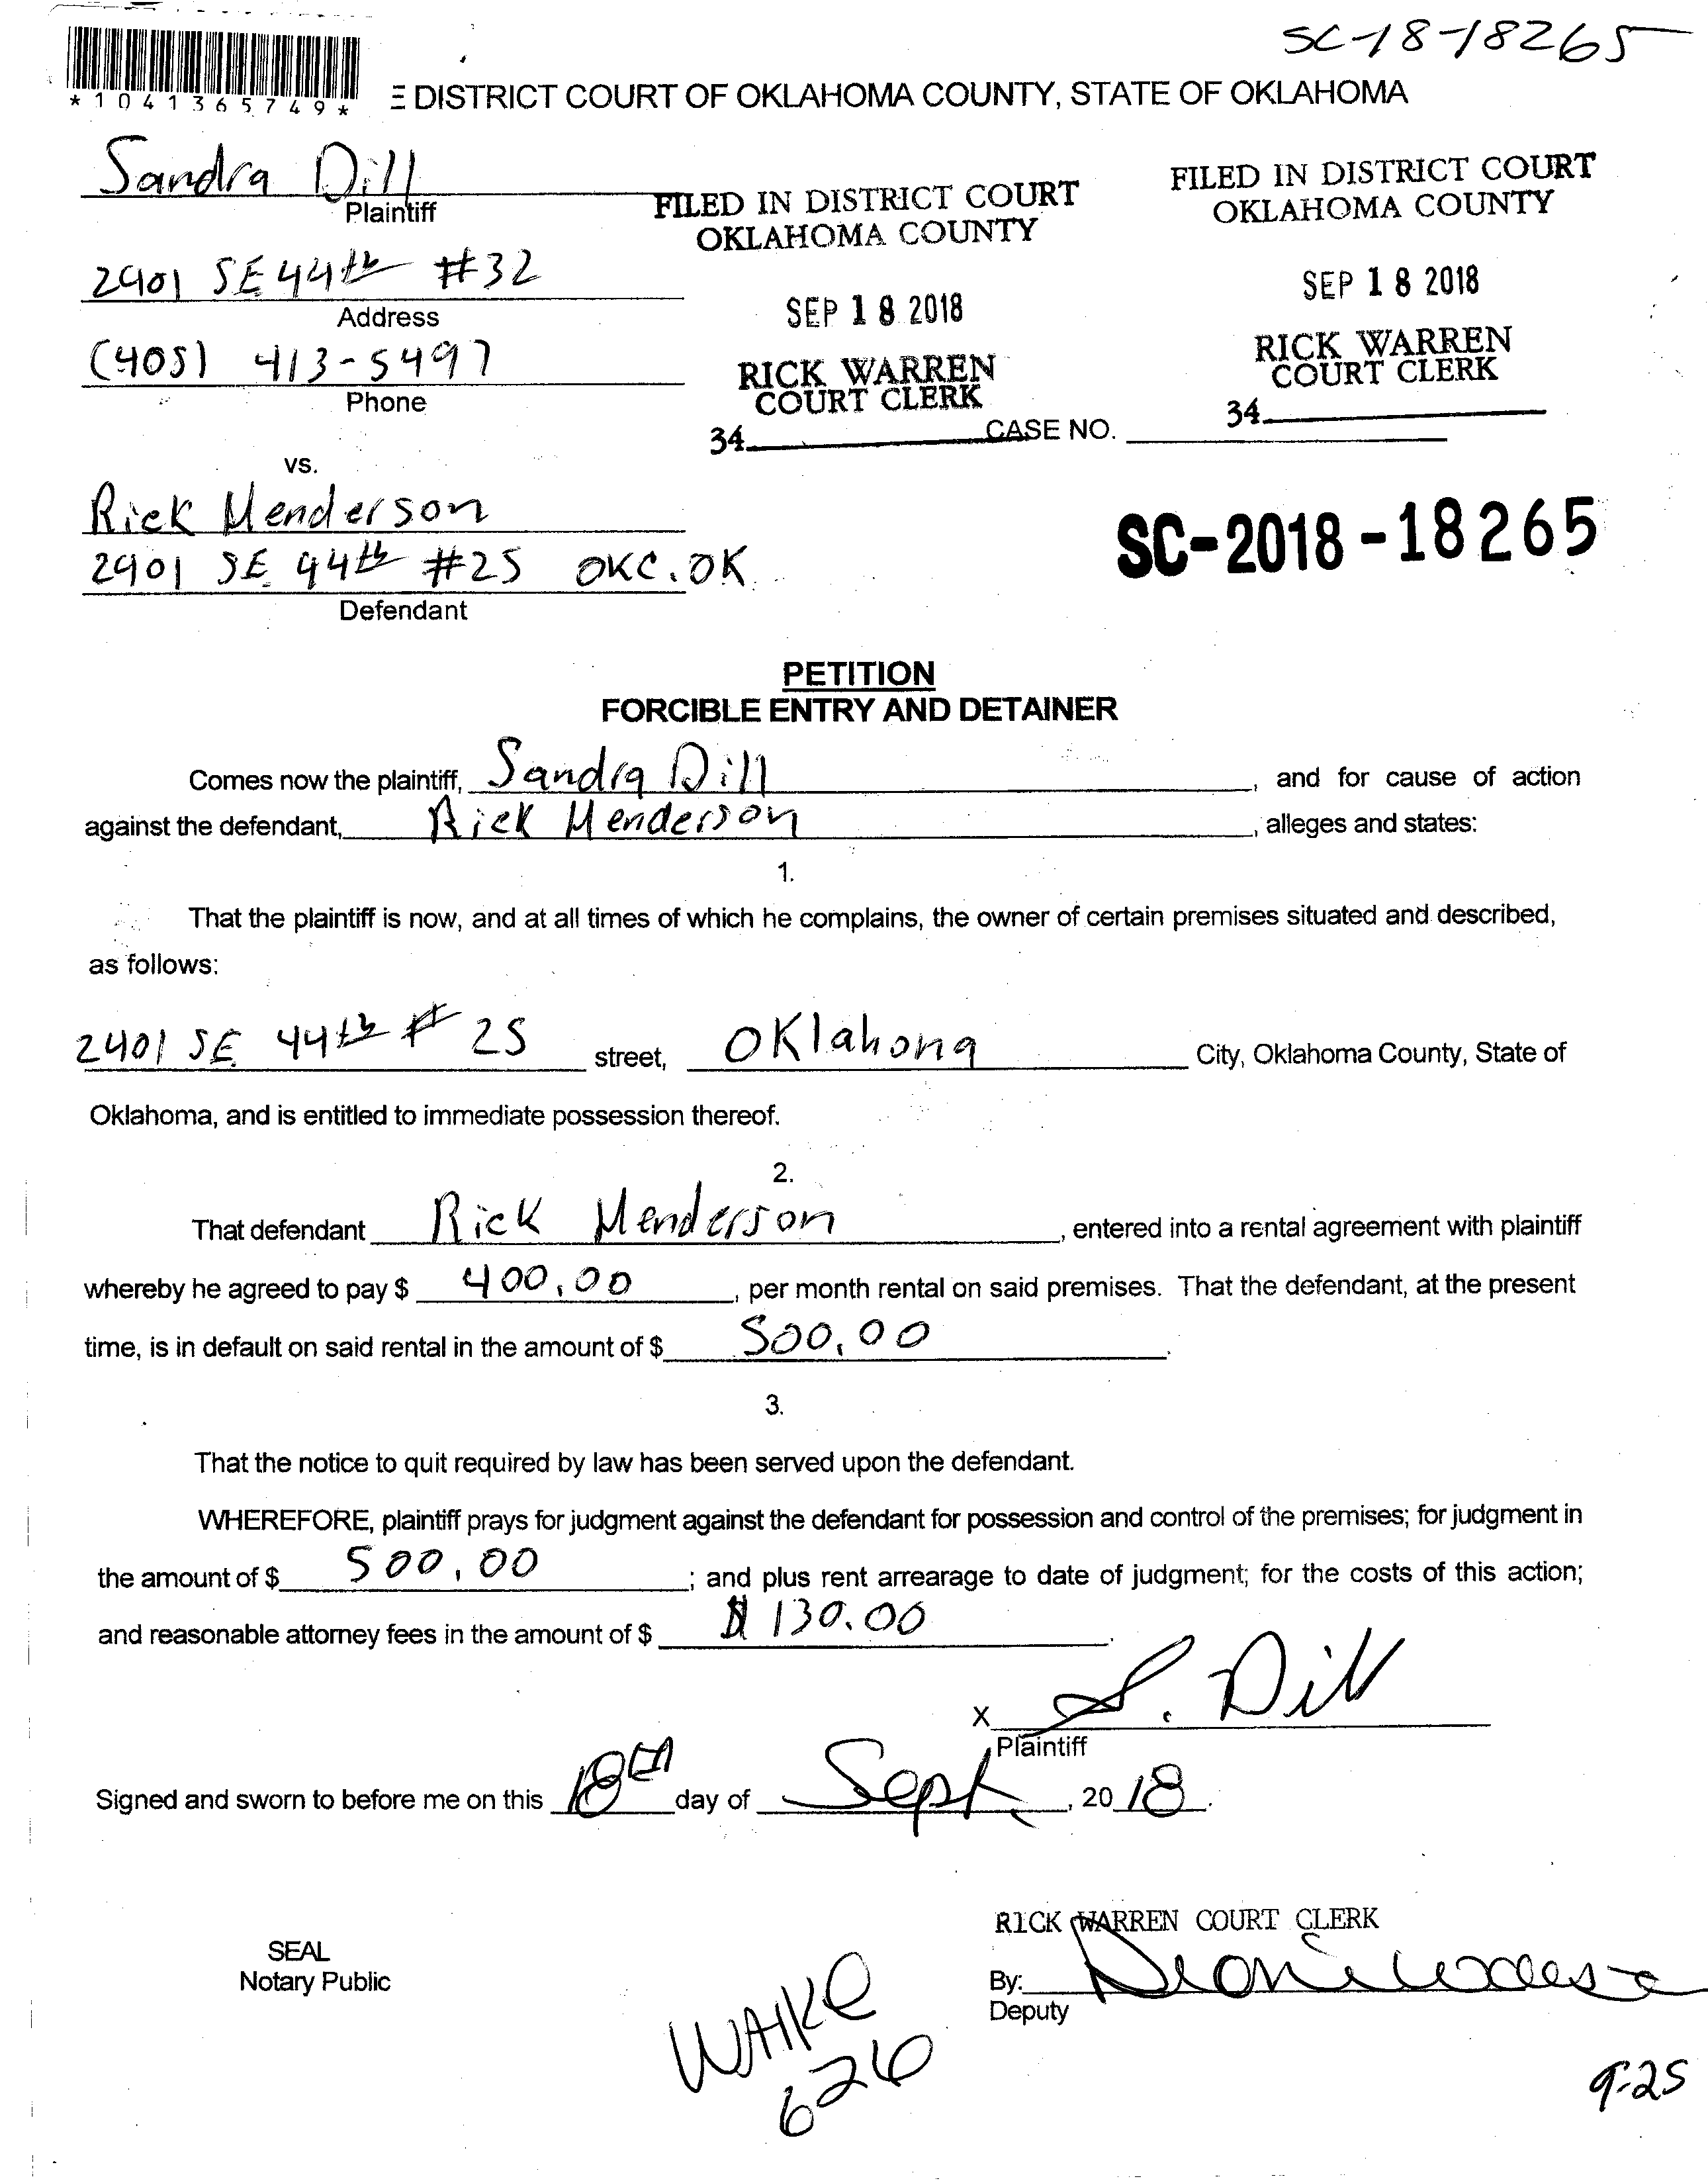 SC-18-18265
*1041365749*
E DISTRICT COURT OF OKLAHOMA COUNTY, STATE OF OKLAHOMA
Sandra Dill
Plaintiff
FILED IN DISTRICT COURT
OKLAHOMA COUNTY
SEP 18 2018
RICK WARREN
COURT CLERK
34
FILED IN DISTRICT COURT
OKLAHOMA COUNTY
SEP 18 2018
RICK WARREN
COURT CLERK
34
2401 SE 44th #32
Address
(405) 413-5497
Phone
CASE NO.
vs.
Rick Henderson
2401 SE 44th #25 OKC. OK
Defendant
SC-2018-18265
PETITION
FORCIBLE ENTRY AND DETAINER
Comes now the plaintiff, Sandra Dill, and for cause of action
against the defendant, Rick Henderson, alleges and states:
1.
That the plaintiff is now, and at all times of which he complains, the owner of certain premises situated and described,
as follows:
2401 SE 44th # 25 street, Oklahoma City, Oklahoma County, State of
Oklahoma, and is entitled to immediate possession thereof.
2.
That defendant Rick Henderson, entered into a rental agreement with plaintiff
whereby he agreed to pay $ 400.00, per month rental on said premises. That the defendant, at the present
time, is in default on said rental in the amount of $ 500.00.
3.
That the notice to quit required by law has been served upon the defendant.
WHEREFORE, plaintiff prays for judgment against the defendant for possession and control of the premises; for judgment in
the amount of $ 500.00; and plus rent arrearage to date of judgment; for the costs of this action;
and reasonable attorney fees in the amount of $ $ 130.00.
X S. Dill
Plaintiff
Signed and sworn to before me on this 18th day of Sept, 2018.
RICK WARREN COURT CLERK
SEAL
Notary Public
By:
Deputy
WAIKE
626
9-25